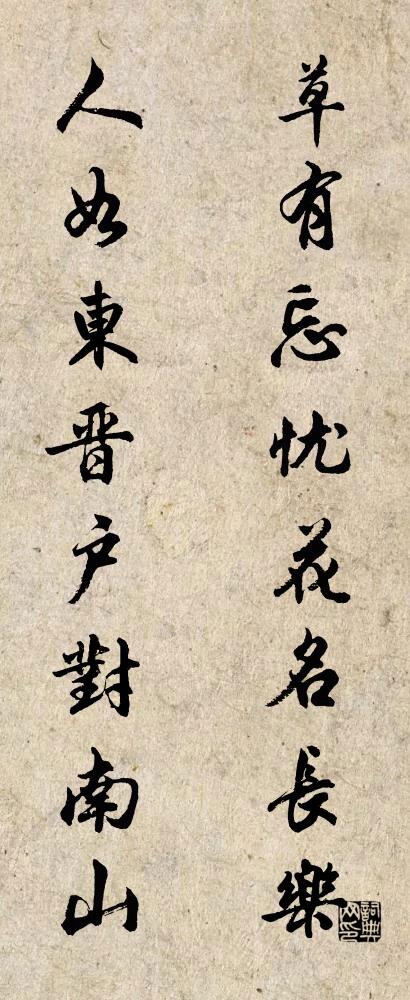 草有忘忧花名長樂
人如東晋户對南山
詞典
网印